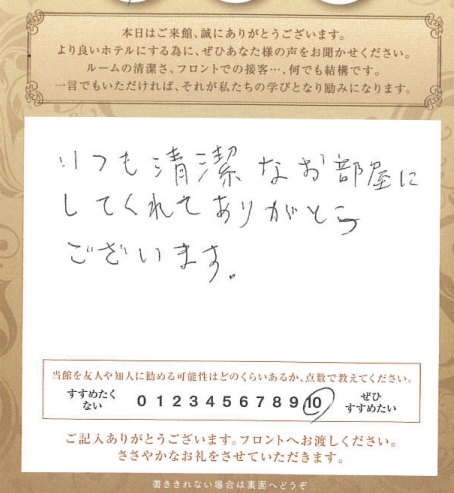 本日はご来館、誠にありがとうございます。
より良いホテルにする為に、ぜひあなた様の声をお聞かせください。
ルームの清潔さ、フロントでの接客…、何でも結構です。
一言でもいただければ、それが私たちの学びとなり励みになります。
いつも清潔なお部屋に
してくれてありがとう
ございます。
当館を友人や知人に勧める可能性はどのくらいあるか、点数で教えてください。
すすめたくない 0 1 2 3 4 5 6 7 8 9 10 ぜひすすめたい
ご記入ありがとうございます。フロントへお渡しください。
ささやかなお礼をさせていただきます。
書ききれない場合は裏面へどうぞ